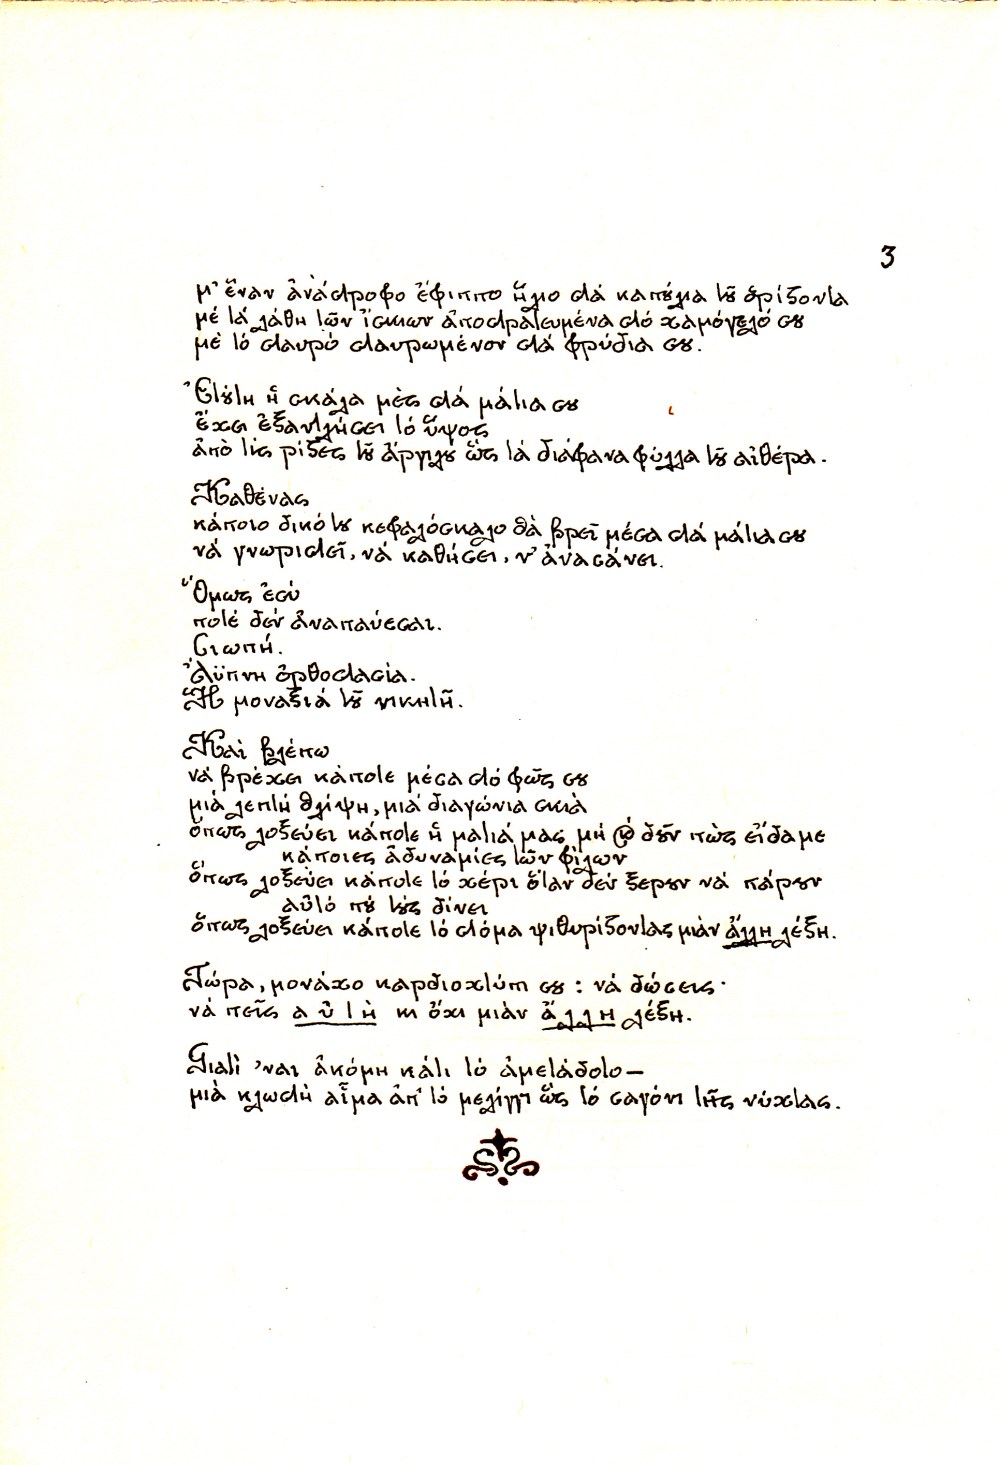 3
μ' ἕναν ἀνάστροφο ἔφιππο ἥλιο στὰ καπούλια τοῦ ὁρίζοντα
μὲ τὰ λάθη τῶν ἴσκιων ἀποστρατευμένα στὸ χαμόγελό σου
μὲ τὸ σταυρὸ σταυρωμένον στὰ φρύδια σου.
Ἐτούτη ἡ σκάλα μὲς στὰ μάτια σου
ἔχει ἐξαντλήσει τὸ ὕψος
ἀπὸ τὶς ρίζες τοῦ ἄργιλου ὣς τὰ διάφανα φύλλα τοῦ αἰθέρα.
Καθένας
κάποιο δικό του κεφαλόσκαλο θὰ βρεῖ μέσα στὰ μάτια σου
νὰ γνωριστεῖ, νὰ καθήσει, ν' ἀνασάνει.
Ὅμως ἐσὺ
ποτὲ δὲν ἀναπαύεσαι.
Σιωπή.
Ἄϋπνη ὀρθοστασία.
Ἡ μοναξιὰ τοῦ νικητῆ.
Καὶ βλέπω
νὰ βρέχει κάποτε μέσα στὸ φῶς σου
μιὰ λεπτὴ θλίψη, μιὰ διαγώνια σκιὰ
ὅπως λοξεύει κάποτε ἡ ματιά μας μὴ δοῦν πὼς εἴδαμε
κάποιες ἀδυναμίες τῶν φίλων
ὅπως λοξεύει κάποτε τὸ χέρι ὅταν δὲν ξέρουν νὰ πάρουν
αὐτὸ ποὺ τοὺς δίνει
ὅπως λοξεύει κάποτε τὸ στόμα ψιθυρίζοντας μιὰν ἄλλη λέξη.
Τώρα, μονάχο καρδιοχτύπι σου: νὰ δώσεις·
νὰ πεῖς αὐτὴ κι ὄχι μιὰν ἄλλη λέξη.
Γιατὶ 'ναι ἀκόμη κάτι τὸ ἀμετάδοτο—
μιὰ κλωστὴ αἷμα ἀπ' τὸ μελίγγι ὣς τὸ σαγόνι τῆς νύχτας.